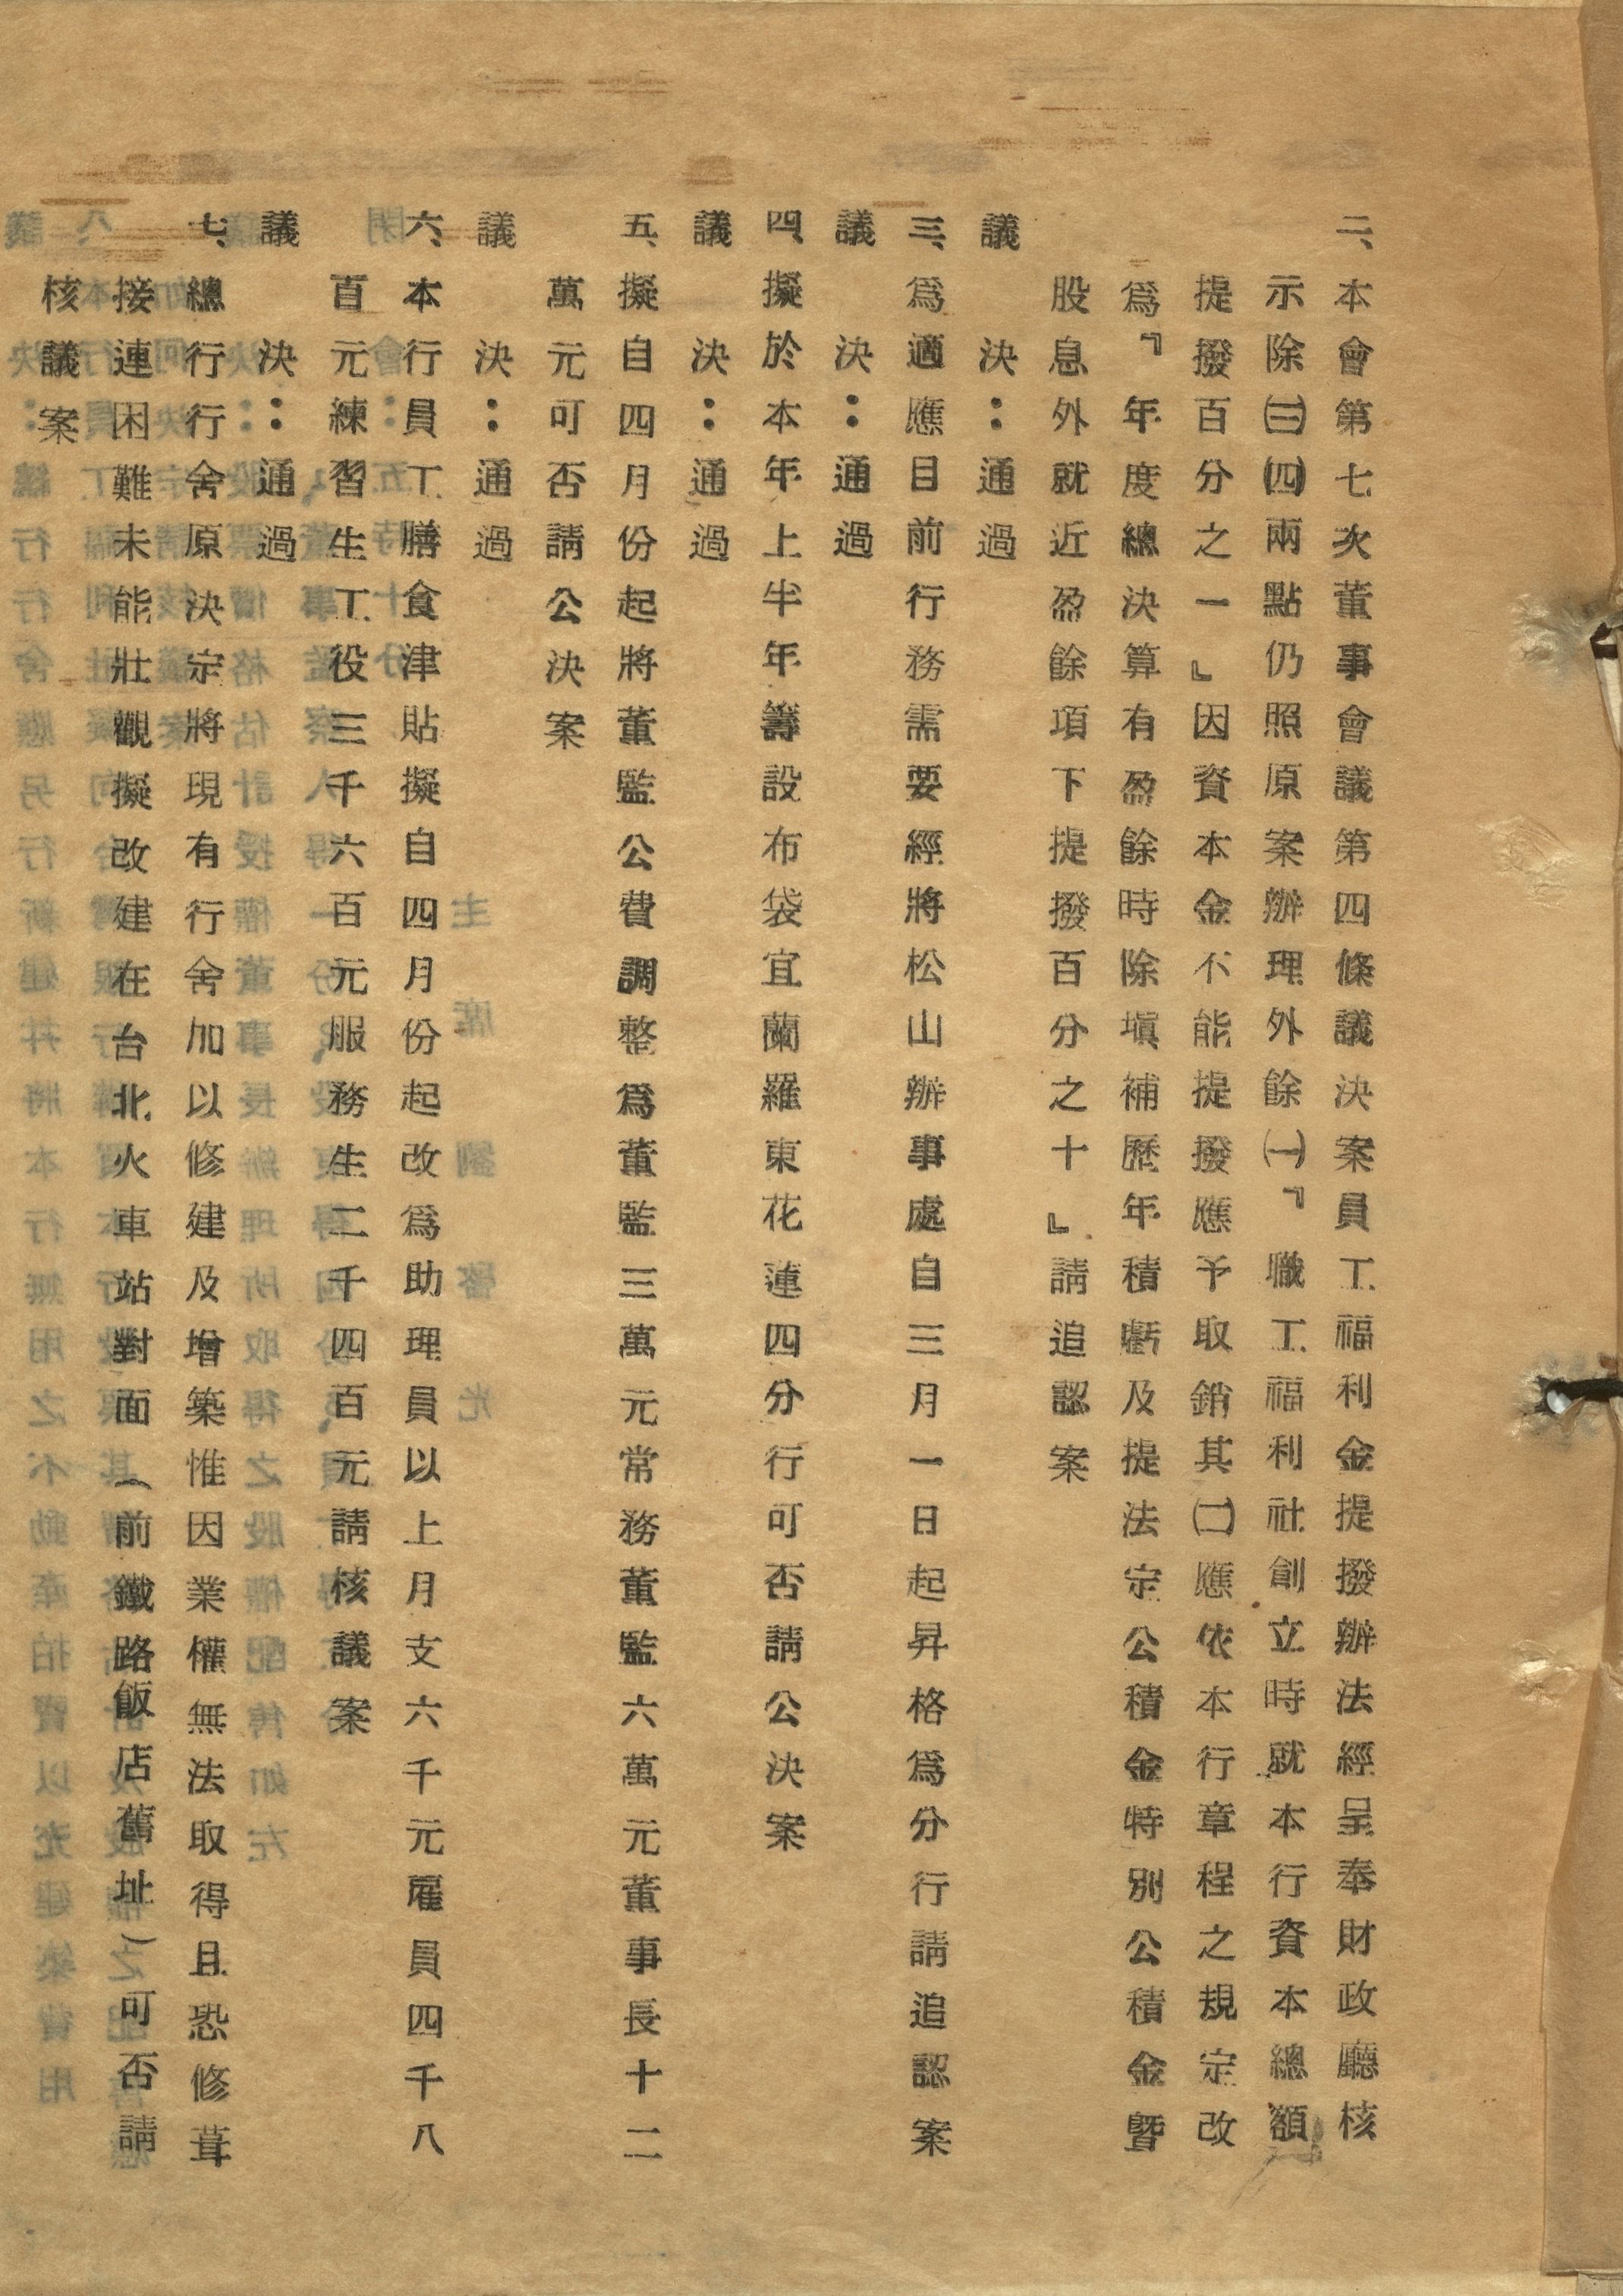 二、本會第七次董事會議第四條議決案員工福利金提撥辦法經呈奉財政廳核
示除㈢㈣兩點仍照原案辦理外餘㈠『職工福利社創立時就本行資本總額
提撥百分之一』因資本金不能提撥應予取銷其㈡應依本行章程之規定改
爲『年度總決算有盈餘時除塡補歷年積虧及提法定公積金特別公積金曁
股息外就近盈餘項下提撥百分之十』請追認案
議決：通過
三、爲適應目前行務需要經將松山辦事處自三月一日起昇格爲分行請追認案
議決：通過
四、擬於本年上半年籌設布袋宜蘭羅東花蓮四分行可否請公決案
議決：通過
五、擬自四月份起將董監公費調整爲董監三萬元常務董監六萬元董事長十二
萬元可否請公決案
議決：通過
六、本行員工膳食津貼擬自四月份起改爲助理員以上月支六千元雇員四千八
百元練習生工役三千六百元服務生二千四百元請核議案
議決：通過
七、總行行舍原決定將現有行舍加以修建及增築惟因業權無法取得且恐修葺
接連困難未能壯觀擬改建在台北火車站對面（前鐵路飯店舊址）可否請
核議案